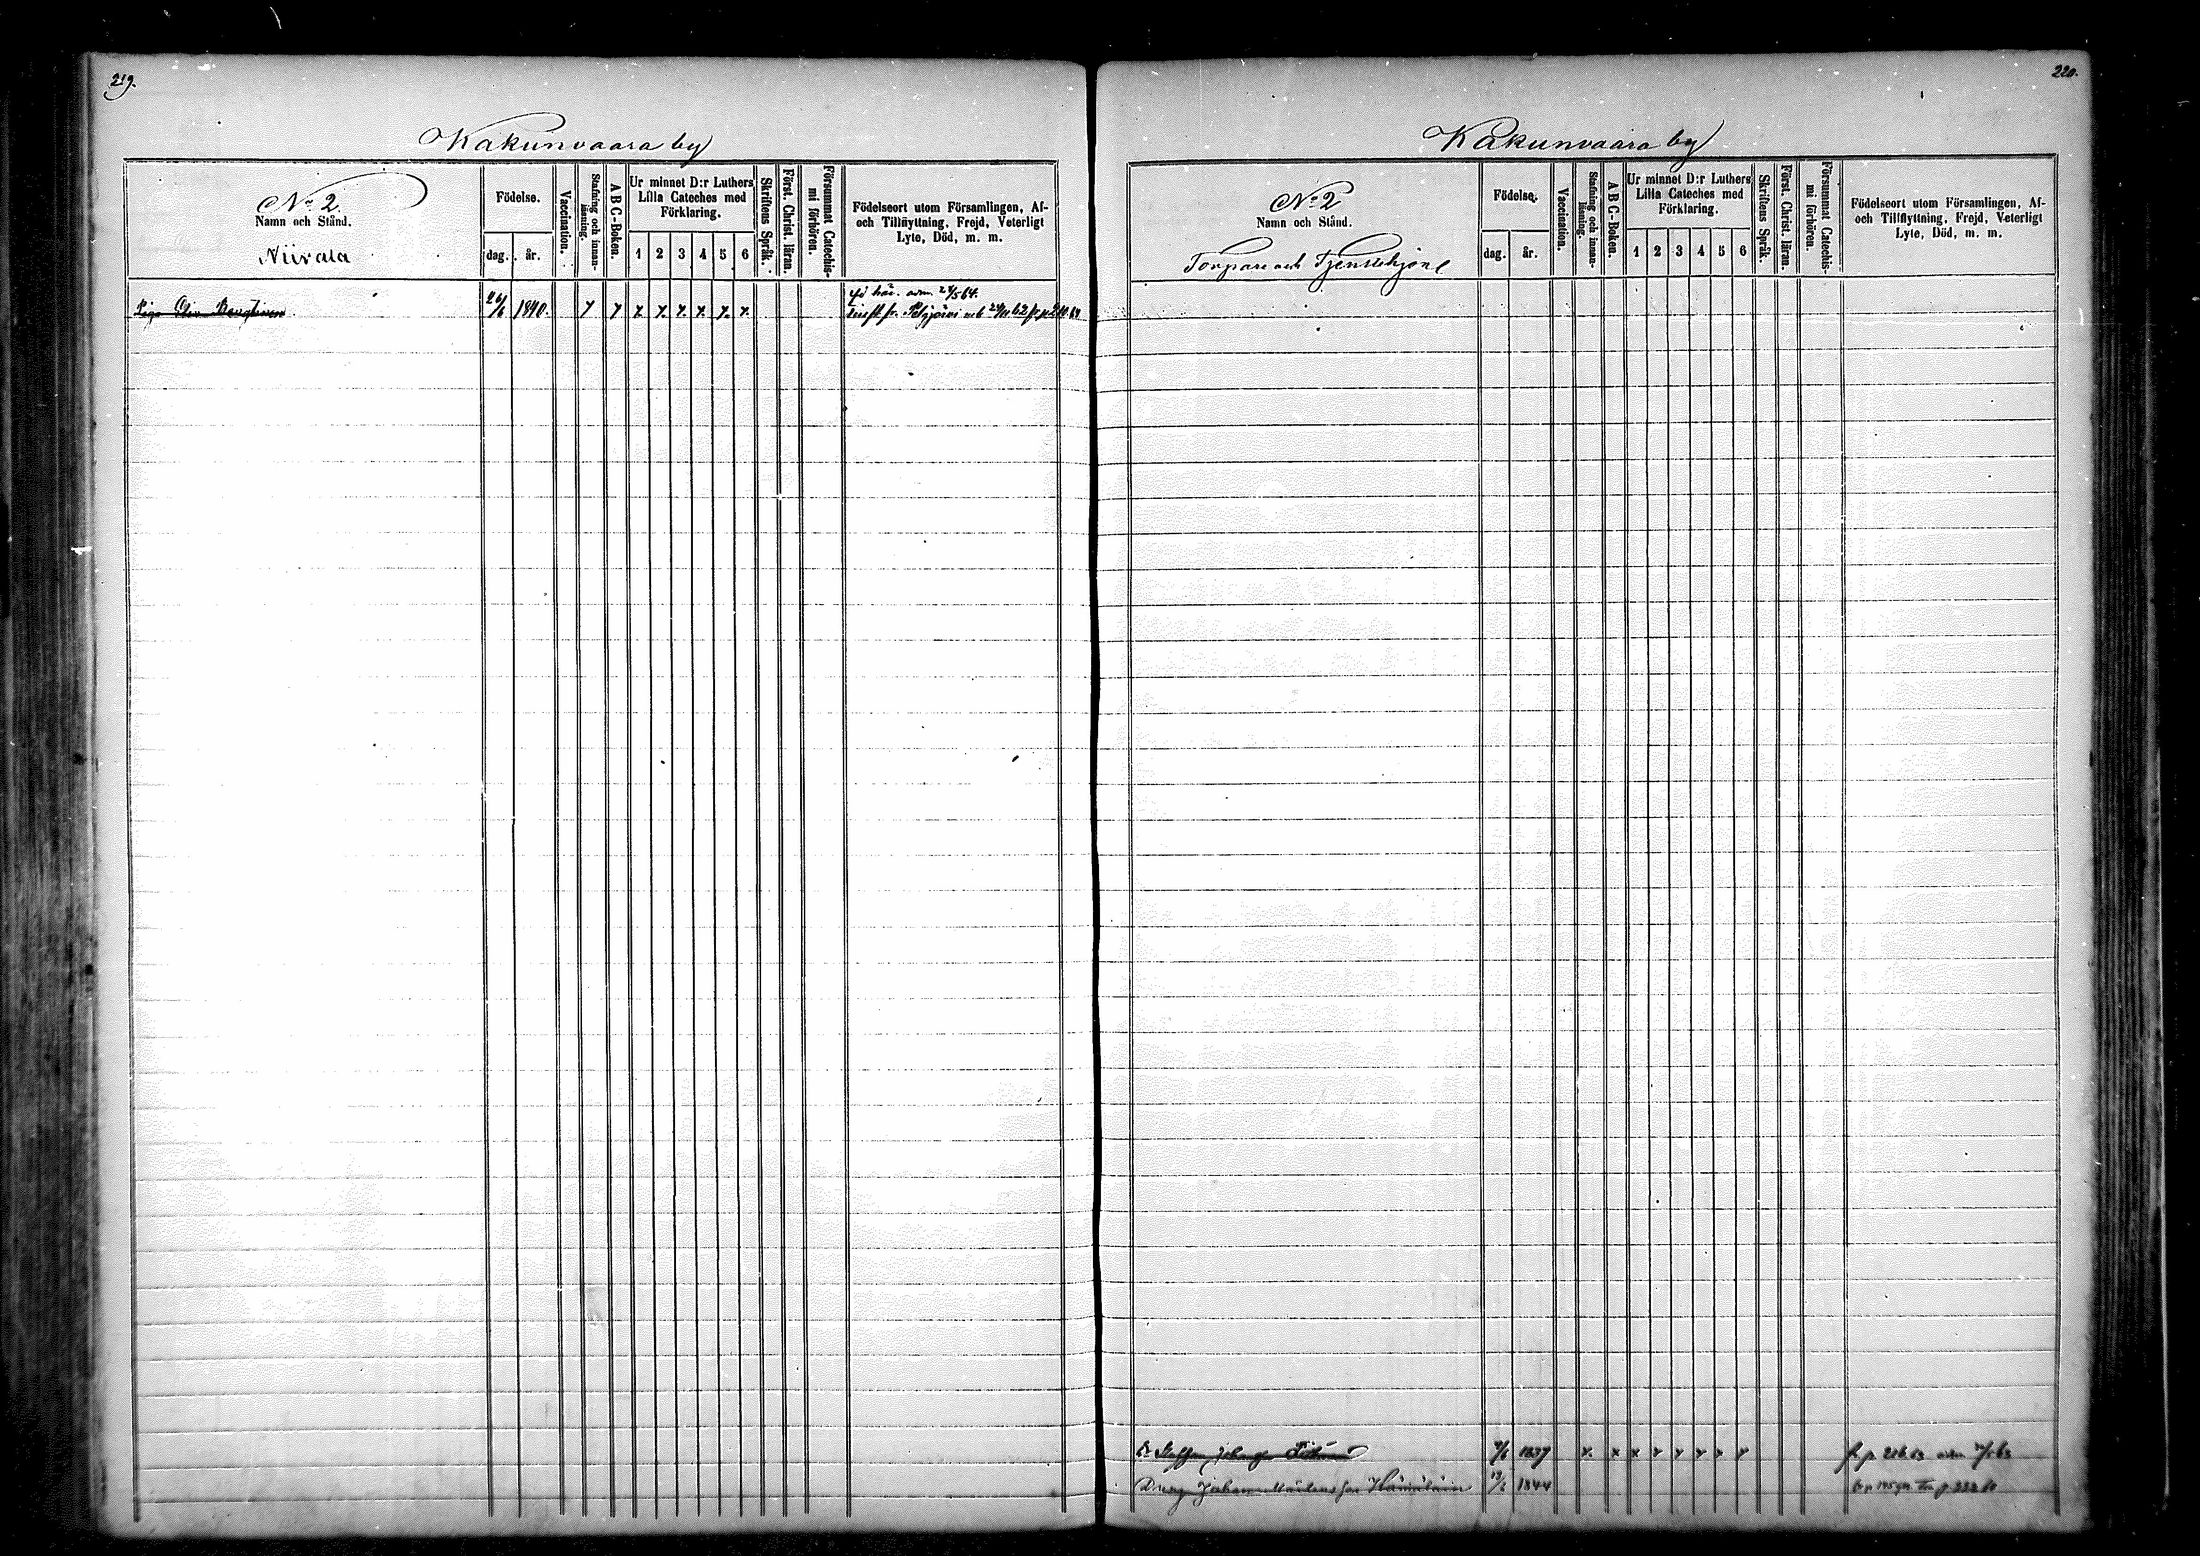 219.
Kakunvaara by
No 2.
Namn och Stånd.
Niivala
Födelse.
dag. år.
Vaccination.
Stafning och innanläsning.
ABC-Boken.
Ur minnet D:r Luthers Lilla Cateches med Förklaring.
1 2 3 4 5 6
Skriftens Språk.
Först. Christ. läran.
Försummat Catechismi förhören.
Födelseort utom Församlingen, Af-
och Tillflyttning, Frejd, Veterligt
Lyte, Död, m. m.
Piga 26/6 1840.
220.
Kakunvaara by
No 2
Namn och Stånd.
Torpare och Tjenstehjon
Födelse.
dag. år.
Vaccination.
Stafning och innanläsning.
ABC-Boken.
Ur minnet D:r Luthers
Lilla Cateches med
Förklaring.
1 2 3 4 5 6
Skriftens Språk.
Först. Christ. läran.
Försummat Catechismi förhören.
Födelseort utom Församlingen, Af-
och Tillflyttning, Frejd, Veterligt
Lyte, Död, m. m.
Dr Staffan 1837
Dreng Johan Hämäläin 1844